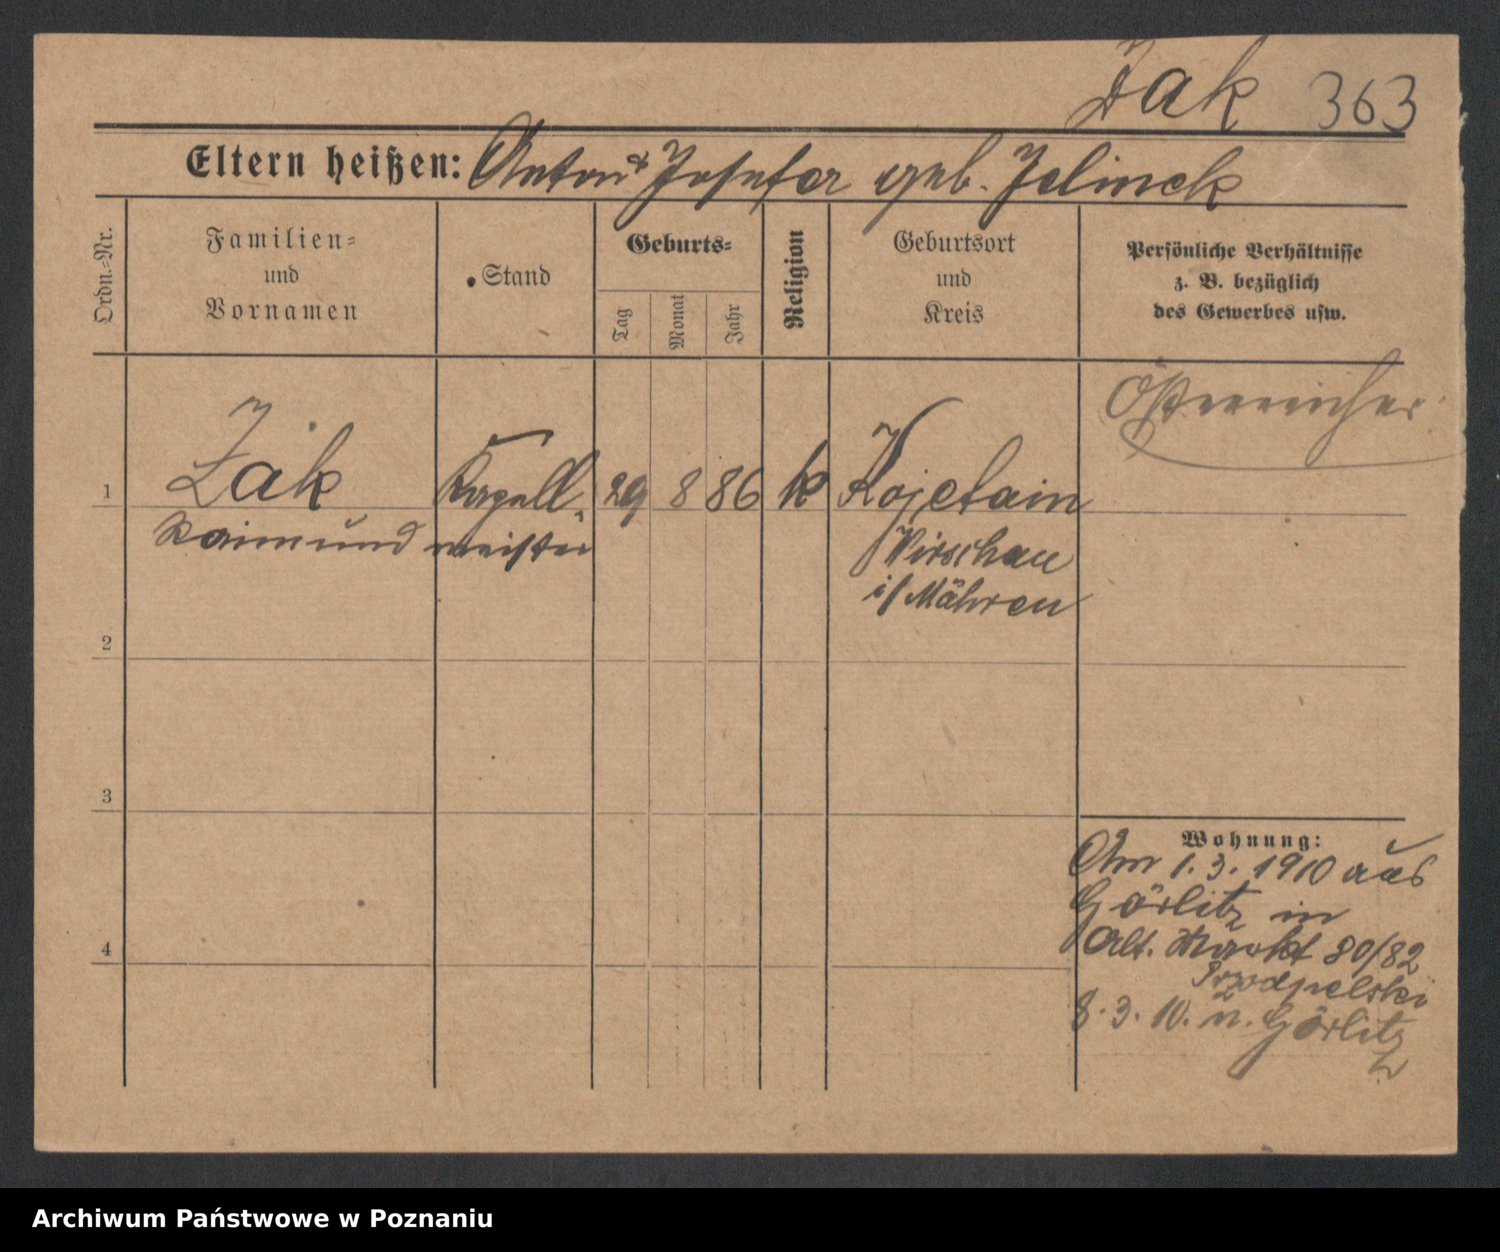 Žak 363
Eltern heißen: Anton & Josefa geb. Jelinek
Ordn.-Nr.
Familien-
und
Vornamen
Stand
Geburts-
Tag
Monat
Jahr
Religion
Geburtsort
und
Kreis
Persönliche Verhältnisse
z. B. bezüglich
des Gewerbes usw.
Österreicher
1
Žak
Raimund
Kapell-
meister
29 8 86 k
Kojetain
Wirschau
i/Mähren
2
3
4
Wohnung:
Am 1.3.1910 aus
Görlitz in
Alt. Markt 80/82
8.3.10. n. Görlitz
Archiwum Państwowe w Poznaniu